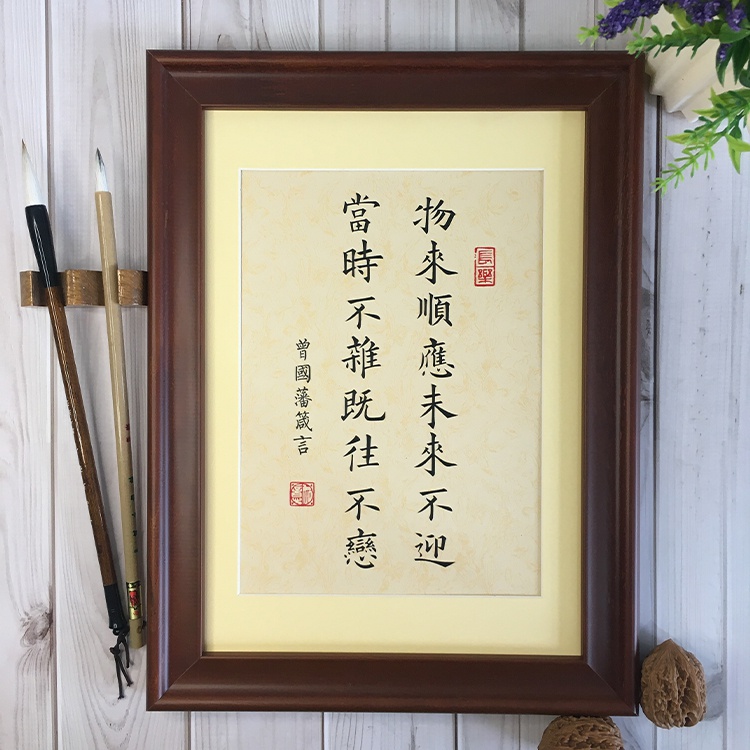 物來順應未來不迎
當時不雜既往不戀
曾國藩箴言
長樂